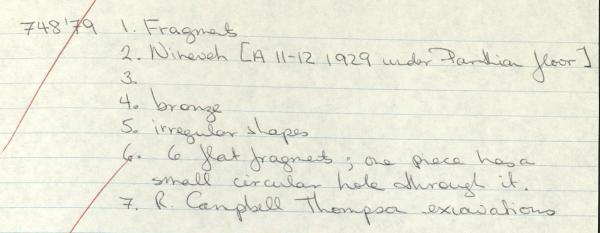 748'79 1. Fragments
2. Nineveh [A 11-12 1929 under Parthian floor]
3.
4. bronze
5. irregular shapes
6. 6 flat fragments; one piece has a
small circular hole through it.
7. R. Campbell Thompson excavations